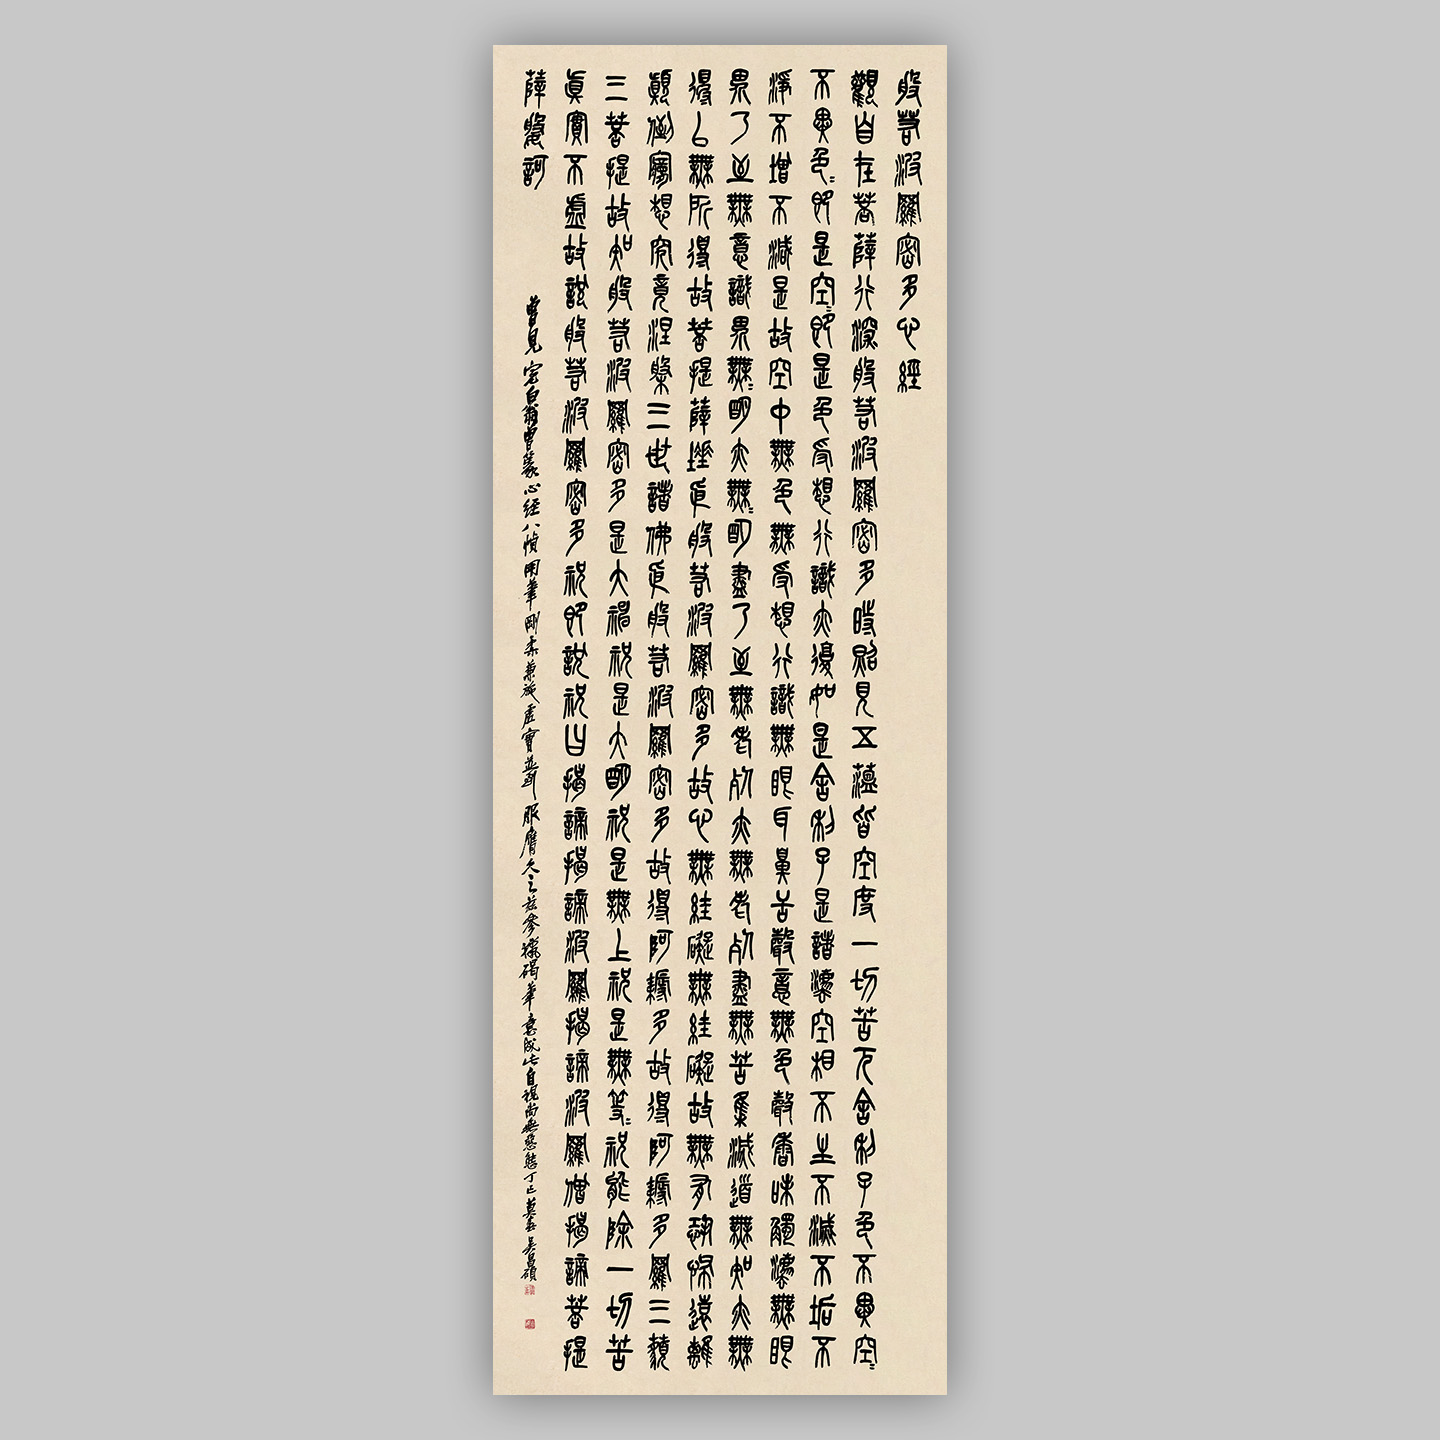 般若波羅密多心經
觀自在菩薩行深般若波羅密多時照見五蘊皆空度一切苦厄舍利子色不異空〻
不異色〻即是空〻即是色受想行識亦復如是舍利子是諸法空相不生不滅不垢不
淨不增不減是故空中無色無受想行識無眼耳鼻舌聲意無色聲香味觸法無眼
界乃至無意識界無〻明亦無〻明盡乃至無老死亦無老死盡無苦集滅道無知亦無
得以無所得故菩提薩埵依般若波羅密多故心無絓礙無絓礙故無有恐怖遠離
顛倒夢想究竟涅槃三世諸佛依般若波羅密多故得阿耨多故得阿耨多羅三藐
三菩提故知般若波羅密多是大神祝是大明祝是無上祝是無等〻祝能除一切苦
真實不虛故說般若波羅密多祝即說祝曰揭諦揭諦波羅揭諦波羅僧揭諦菩提
薩婆訶
曾見完白翁曾篆心經八幀用筆剛柔兼施虛實並到服膺久之茲參獵碣筆意成此自視尚無惡態丁巳莫春吳昌碩